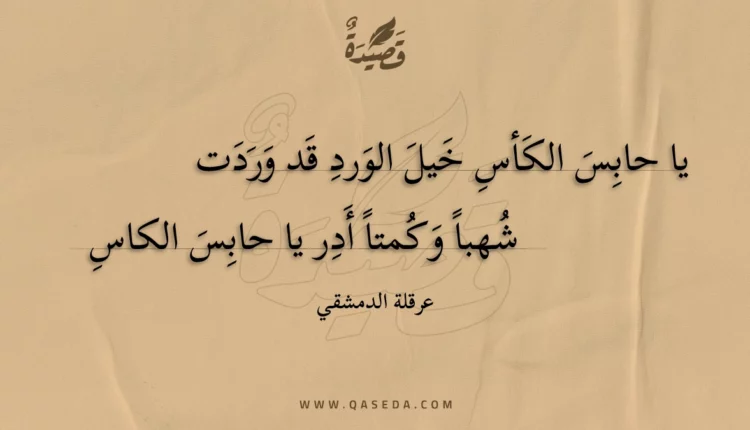 قَصِيدَةٌ
يا حابِسَ الكَأسِ خَيلَ الوَردِ قَد وَرَدَت
شُهباً وَكُمتاً أَدِر يا حابِسَ الكاسِ
عرقلة الدمشقي
WWW.QASEDA.COM